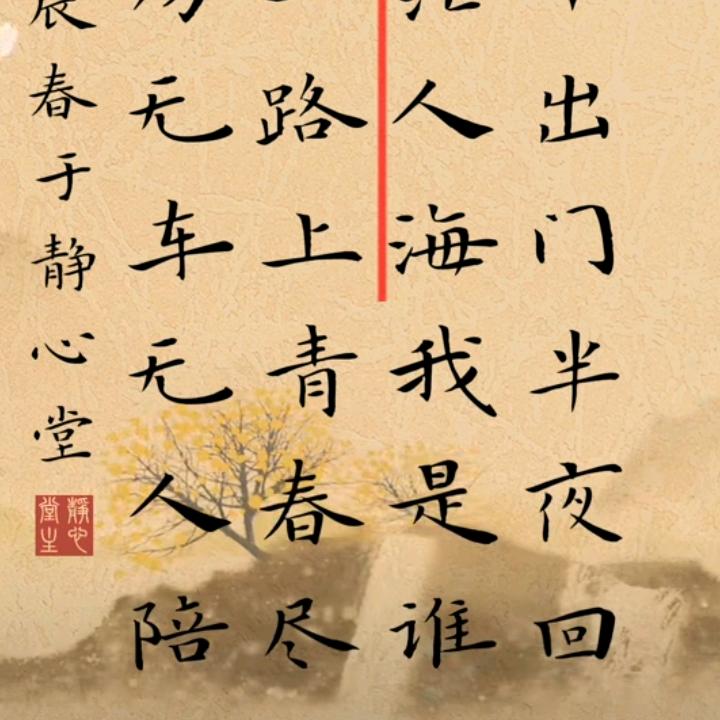 出门半夜回
人海我是谁
路上青春尽
无车无人陪
春于静心堂
静心堂主